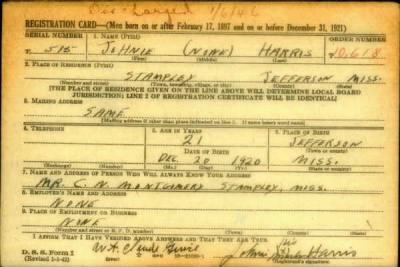 Discharged 1/6/46
REGISTRATION CARD—(Men born on or after February 17, 1897 and on or before December 31, 1921)
SERIAL NUMBER 1. NAME (Print) ORDER NUMBER
T 515 JOHNIE (NONE) HARRIS 10,618
(First) (Middle) (Last)
2. PLACE OF RESIDENCE (Print)
STAMPLEY JEFFERSON MISS.
(Number and street) (Town, township, village, or city) (County) (State)
[THE PLACE OF RESIDENCE GIVEN ON THE LINE ABOVE WILL DETERMINE LOCAL BOARD
JURISDICTION; LINE 2 OF REGISTRATION CERTIFICATE WILL BE IDENTICAL]
3. MAILING ADDRESS
SAME
[Mailing address if other than place indicated on line 2. If same insert word same]
4. TELEPHONE 5. AGE IN YEARS 6. PLACE OF BIRTH
21 JEFFERSON
DATE OF BIRTH (Town or county)
DEC 20 1920 MISS.
(Exchange) (Number) (Mo.) (Day) (Yr.) (State or country)
7. NAME AND ADDRESS OF PERSON WHO WILL ALWAYS KNOW YOUR ADDRESS
MR. C. N. MONTGOMERY STAMPLEY, MISS.
8. EMPLOYER'S NAME AND ADDRESS
NONE
9. PLACE OF EMPLOYMENT OR BUSINESS
NONE
(Number and street or R. F. D. number) (Town) (County) (State)
I AFFIRM THAT I HAVE VERIFIED ABOVE ANSWERS AND THAT THEY ARE TRUE.
D. S. S. Form 1 his
(Revised 1-1-42) Johnie mark Harris